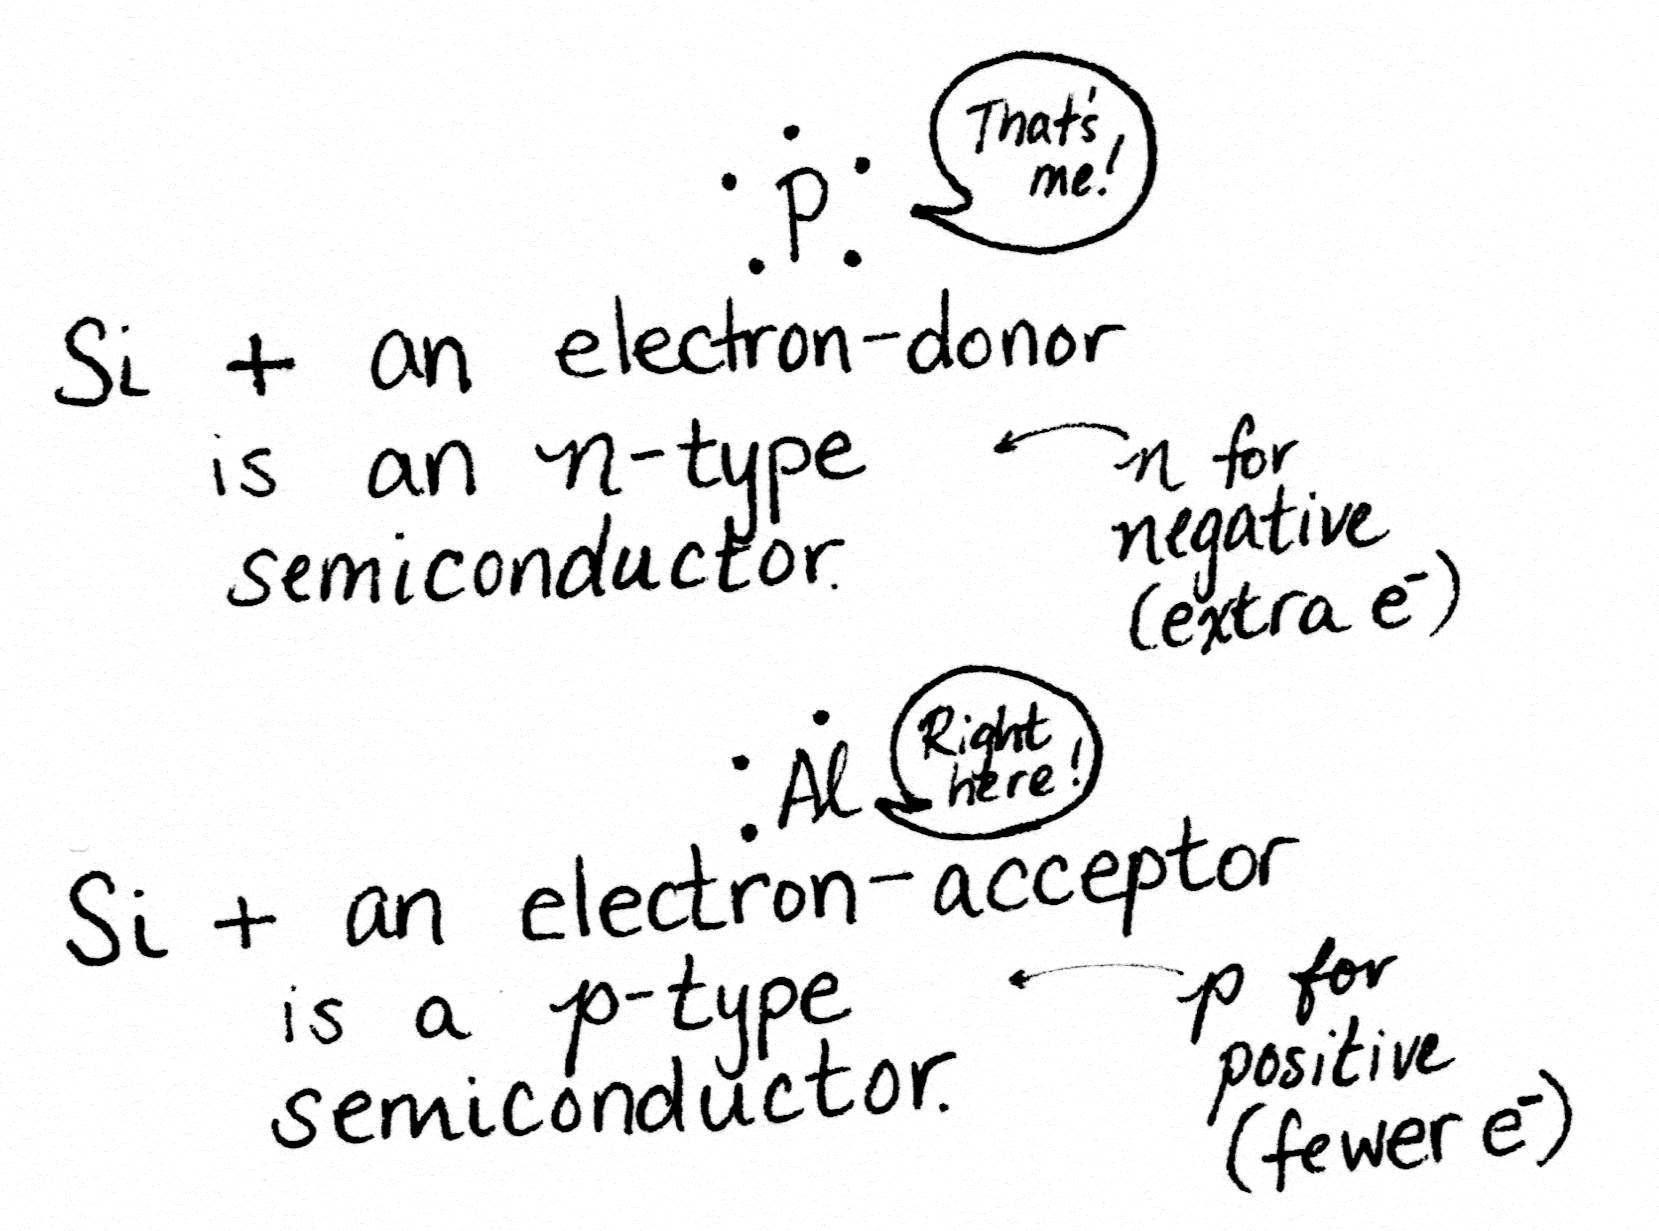 That's
me!
P
Si + an electron-donor
is an n-type
semiconductor.
n for
negative
(extra e⁻)
Right
here!
Al
Si + an electron-acceptor
is a p-type
semiconductor.
p for
positive
(fewer e⁻)